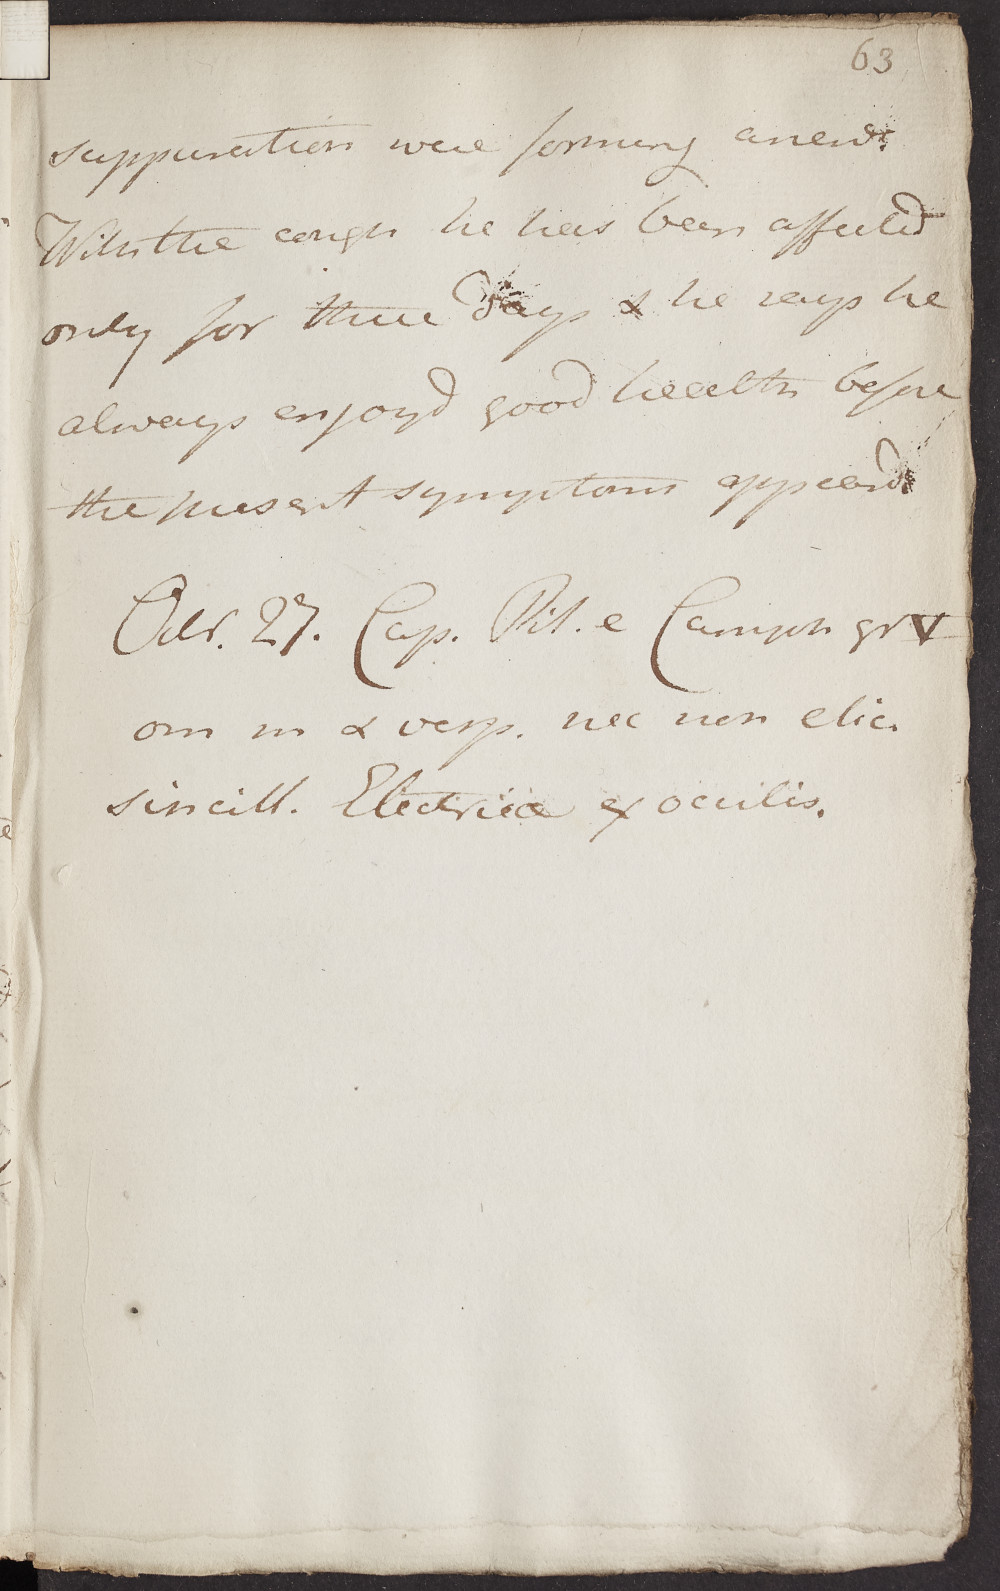 63
suppuration were forming anew.
With the cough he has been affected
only for three Days & he says he
always enjoyd good health before
the present symptoms appeard.
Octr. 27. Cap. Pil. e Camph gr V
om m & vesp. nec non elic.
scintill. Electricæ ex oculis.